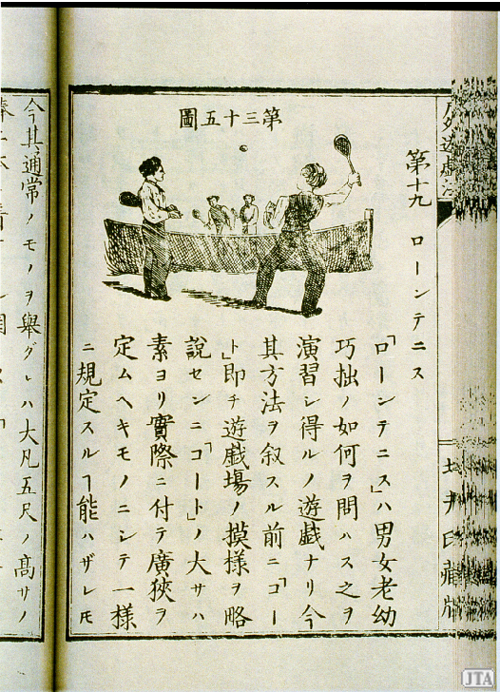 第十九　ローンテニス
第三十五圖
「ローンテニス」ハ男女老幼
巧拙ノ如何ヲ問ハス之ヲ
演習シ得ルノ遊戯ナリ今
其方法ヲ叙スル前ニ「コー
ト」即チ遊戯場ノ摸様ヲ略
説センニ「コート」ノ大サハ
素ヨリ實際ニ付テ廣狹ヲ
定ムヘキモノニシテ一様
ニ規定スルヿ能ハザレ𪜈
今其通常ノモノヲ舉グレハ大凡五尺ノ髙サノ
JTA